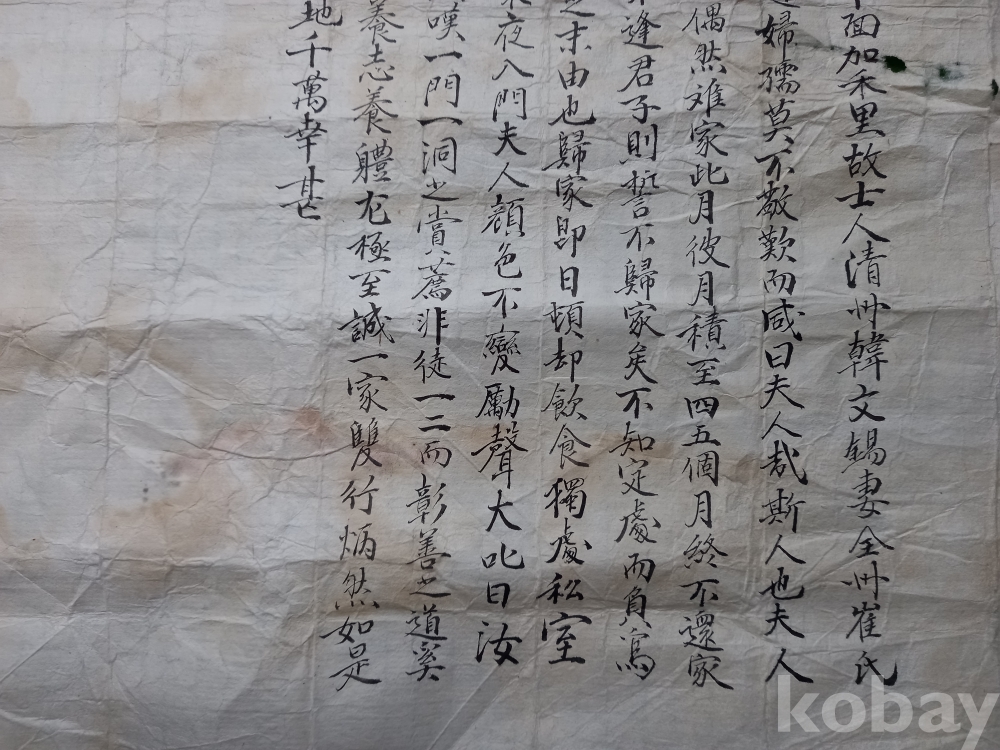 面加禾里故士人清州韓文錫妻全州崔氏
婦孺莫不歎歎而咸曰夫人哉斯人也夫人
偶然难家此月彼月積至四五個月終不還家
逢君子則誓不歸家矣不知定處而負寃
之末由也歸家即日頓却飮食獨處私室
夜入門夫人顔色不變勵聲大叱曰汝
嘆一門一洞之賞薦非徒一二而彰善之道奚
養志養體尤極至誠一家雙行炳然如是
地千萬幸甚
kobay